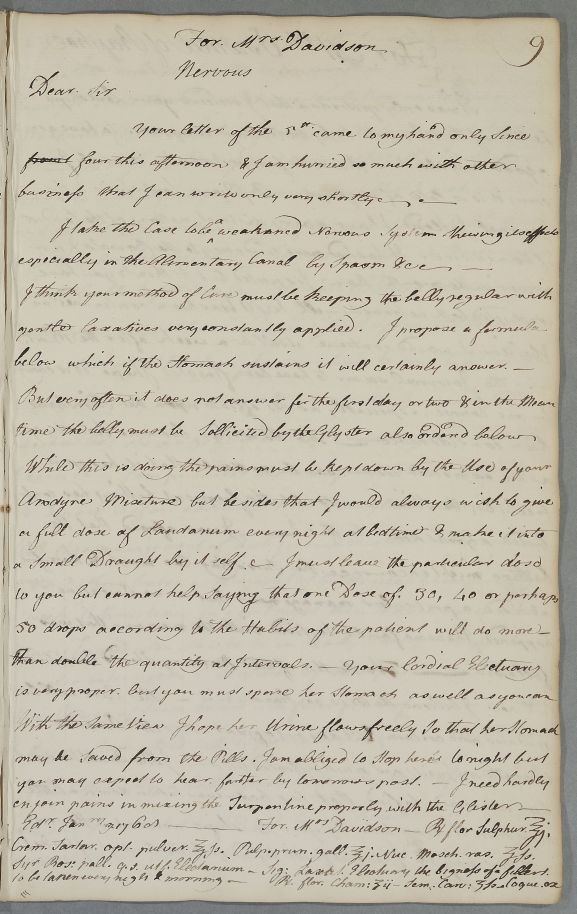 For. Mrs. Davidson
9
Nervous
Dear Sir
Your letter of the 5th came to my hand only Since
four this afternoon & I am hurried so much with other
business that I can write only very shortly
I take the Case to be a weakened Nervous System shewing its effects
especially in the Alimentary Canal by Spasm &ce
I think your method of Cure must be keeping the belly regular with
gentle Laxatives very constantly applied. I propose a formula
below which if the Stomach sustains it will certainly answer.
But very often it does not answer for the first day or two & in the Mean
time the belly must be Sollicited by the Glyster also orderd below
While this is doing the pains must be kept down by the Use of your
Anodyne Mixture but besides that I would always wish to give
a full dose of Laudanum every night at bedtime & make it into
a Small Draught by it self I must leave the particular dose
to you but cannot help Saying that one Dose of 30, 40 or perhaps
50 drops according to the Habits of the patient will do more
than double the quantity at Intervals. Your Cordial Electuary
is very proper. but you must spare her Stomach as well as you can
With the Same View I hope her Urine flows freely So that her Stomach
may be Saved from the Pills. I am obliged to Stop here to night but
you may expect to hear farther by tomorrows post. I need hardly
enjoin pains in mixing the Turpentine properly with the Glister
Edr. For. Mrs Davidson ℞ flor Sulphur. ℥j
Crem. Tartar. opt. pulver. ℥fs. Pulp. prun. gall. ℥j. Nuc. Mosch. ras. ʒfs.
Syr Ros: pall. q.s. utf. Electarium Sig: Laxat. Electuary the bigness of a filbert
to be taken every night & morning ℞. flor. Cham: ʒij Sem. Car: ʒfs Coque. ex